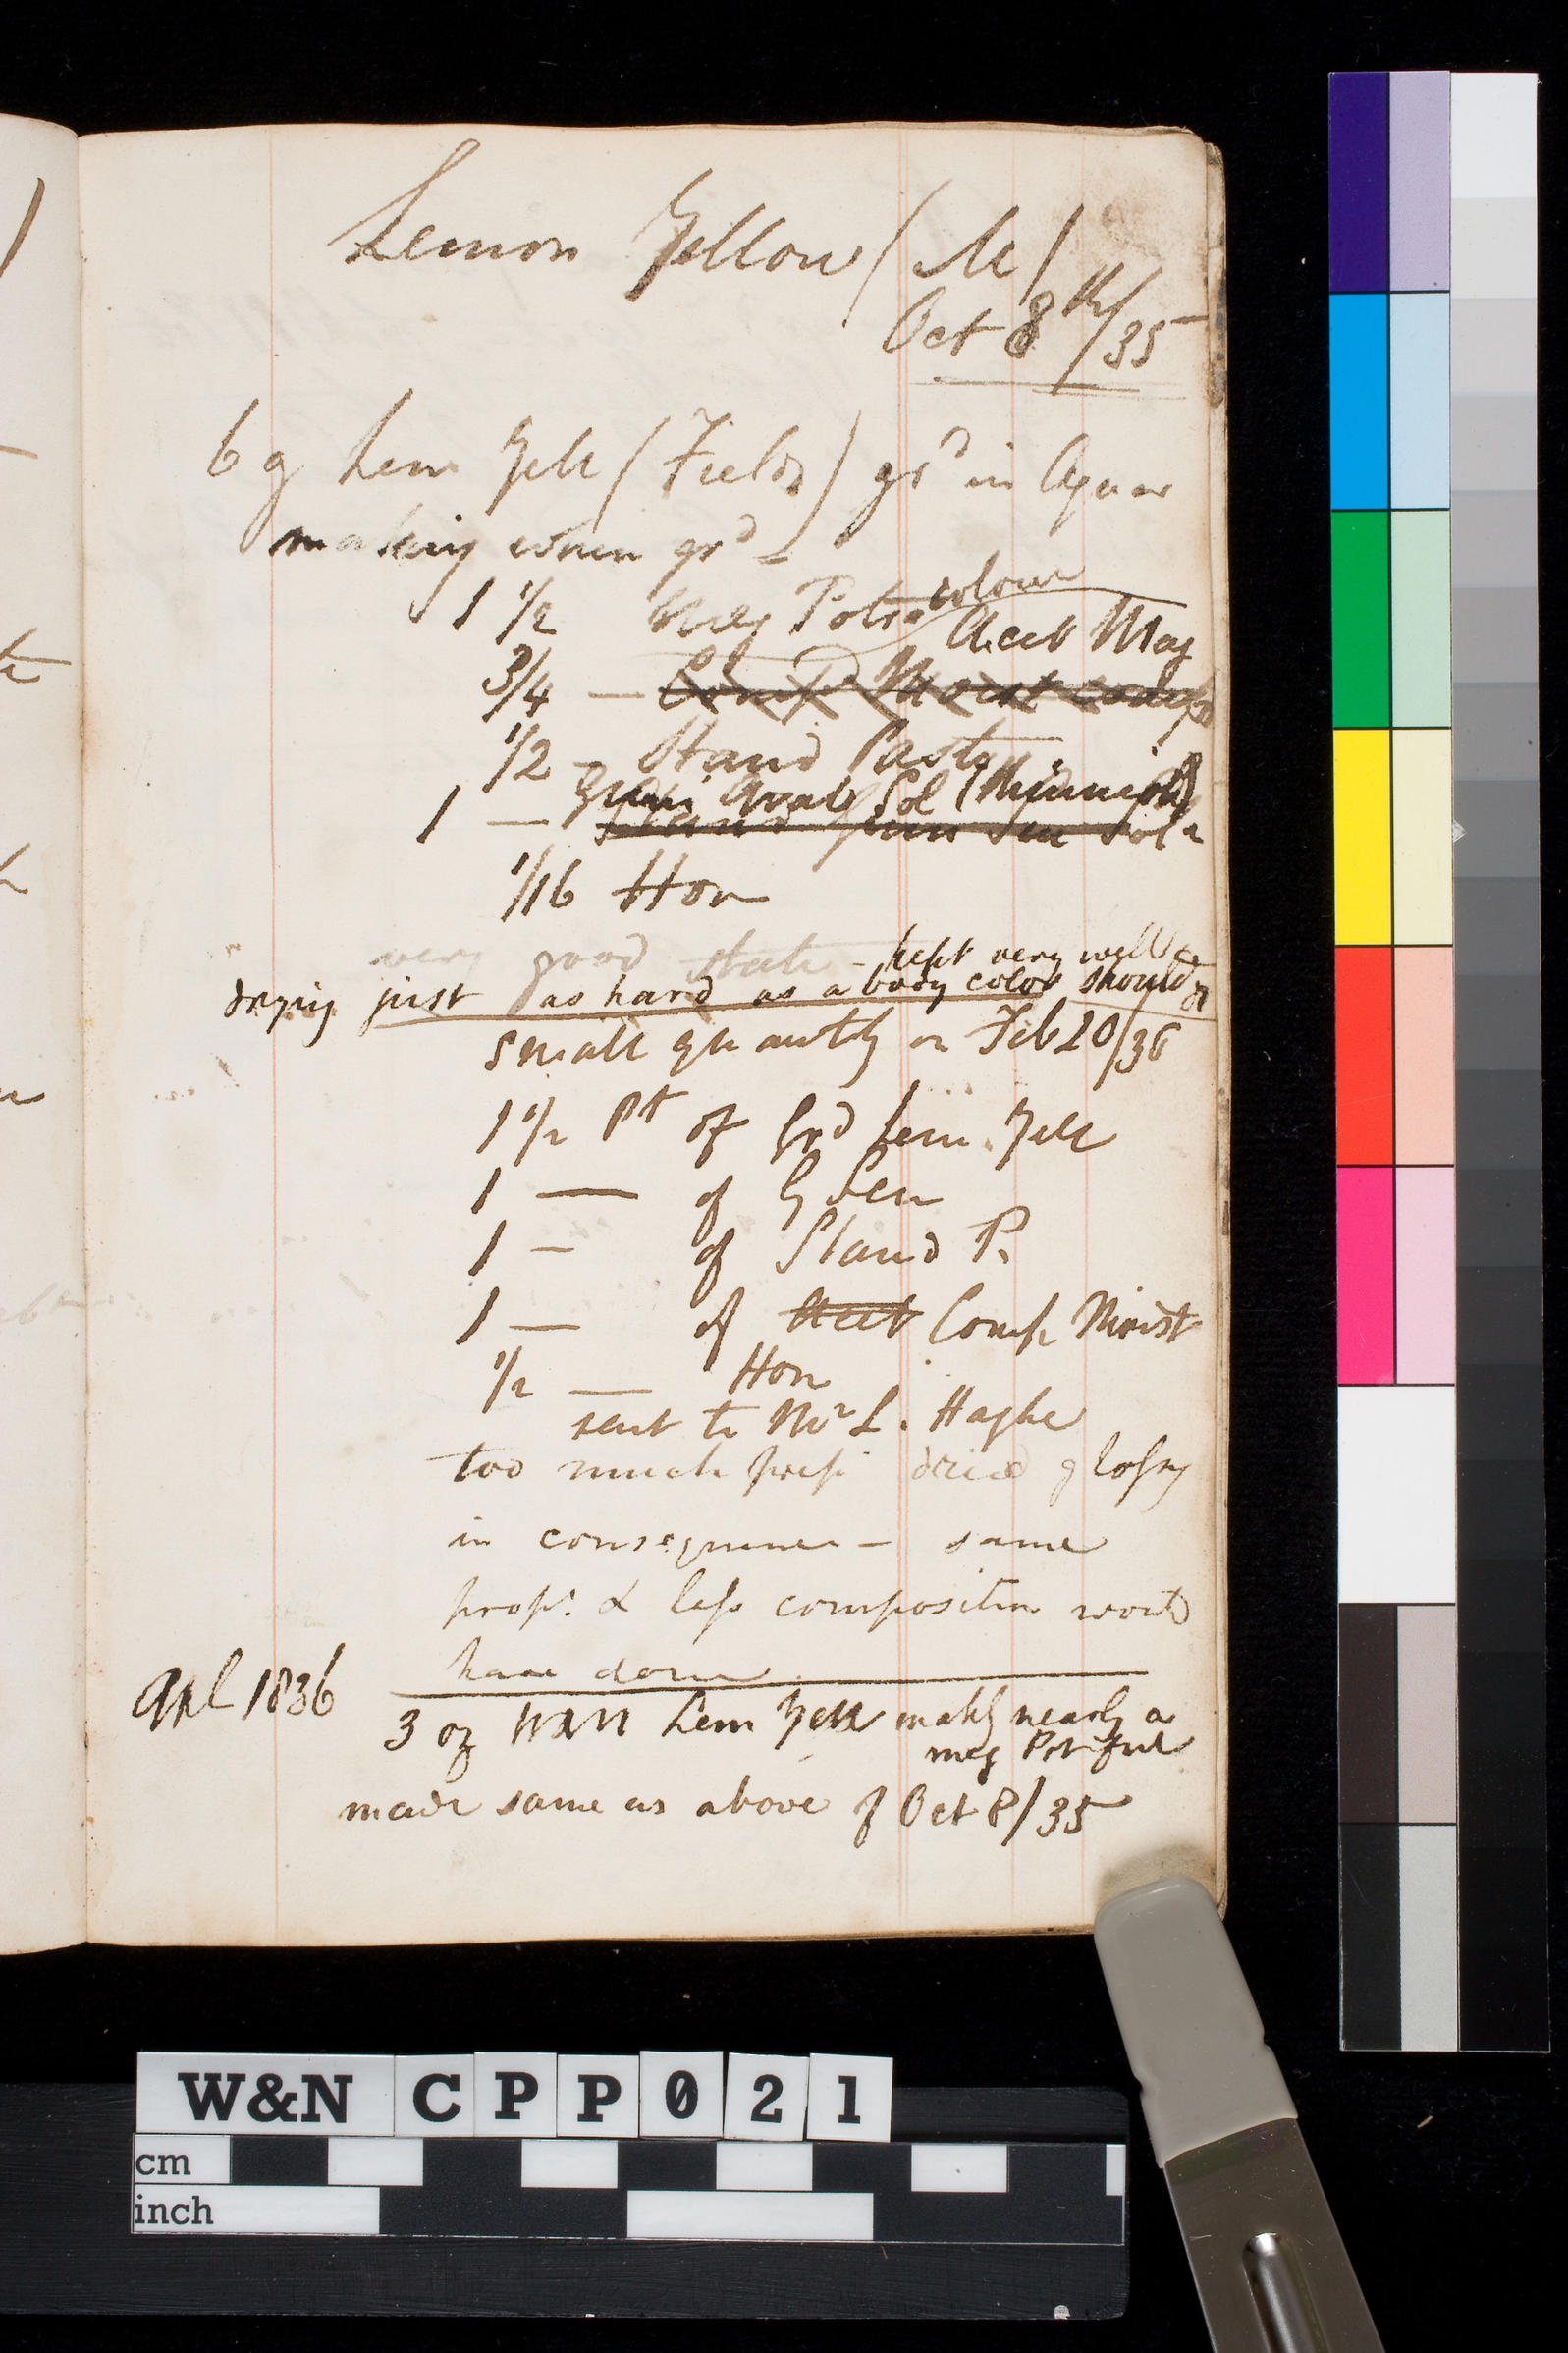 Lemon Yellow (M)
Oct 8th/35
6 oz Lem Yell (Fields) grd in Aqua
making when grd
1 1/2 Meg Pots colour
Acet Mag
3/4 — Comp Moist
1/2 – Stand Paste
Gum Arab Sol
1 — Stand Gum Sen Sol
1/16 Hon
very good state – kept very well &
drying just as hard as a body color should
small quantity on Feb 20/36
1 1/2 Pt of Grd Lem. Yell
1 — of G Sen
1 – of Stand P.
1 — of Acet Comp Moist
1/2 — Hon
sent to Mr L. Haghe
too much prep dried glossy
in consequence – same
prop. & less composition would
have done.
Apl 1836
3 oz W&N Lem Yell makg nearly a
meg Pot full
made same as above of Oct 8/35
W&N CPP021
cm
inch